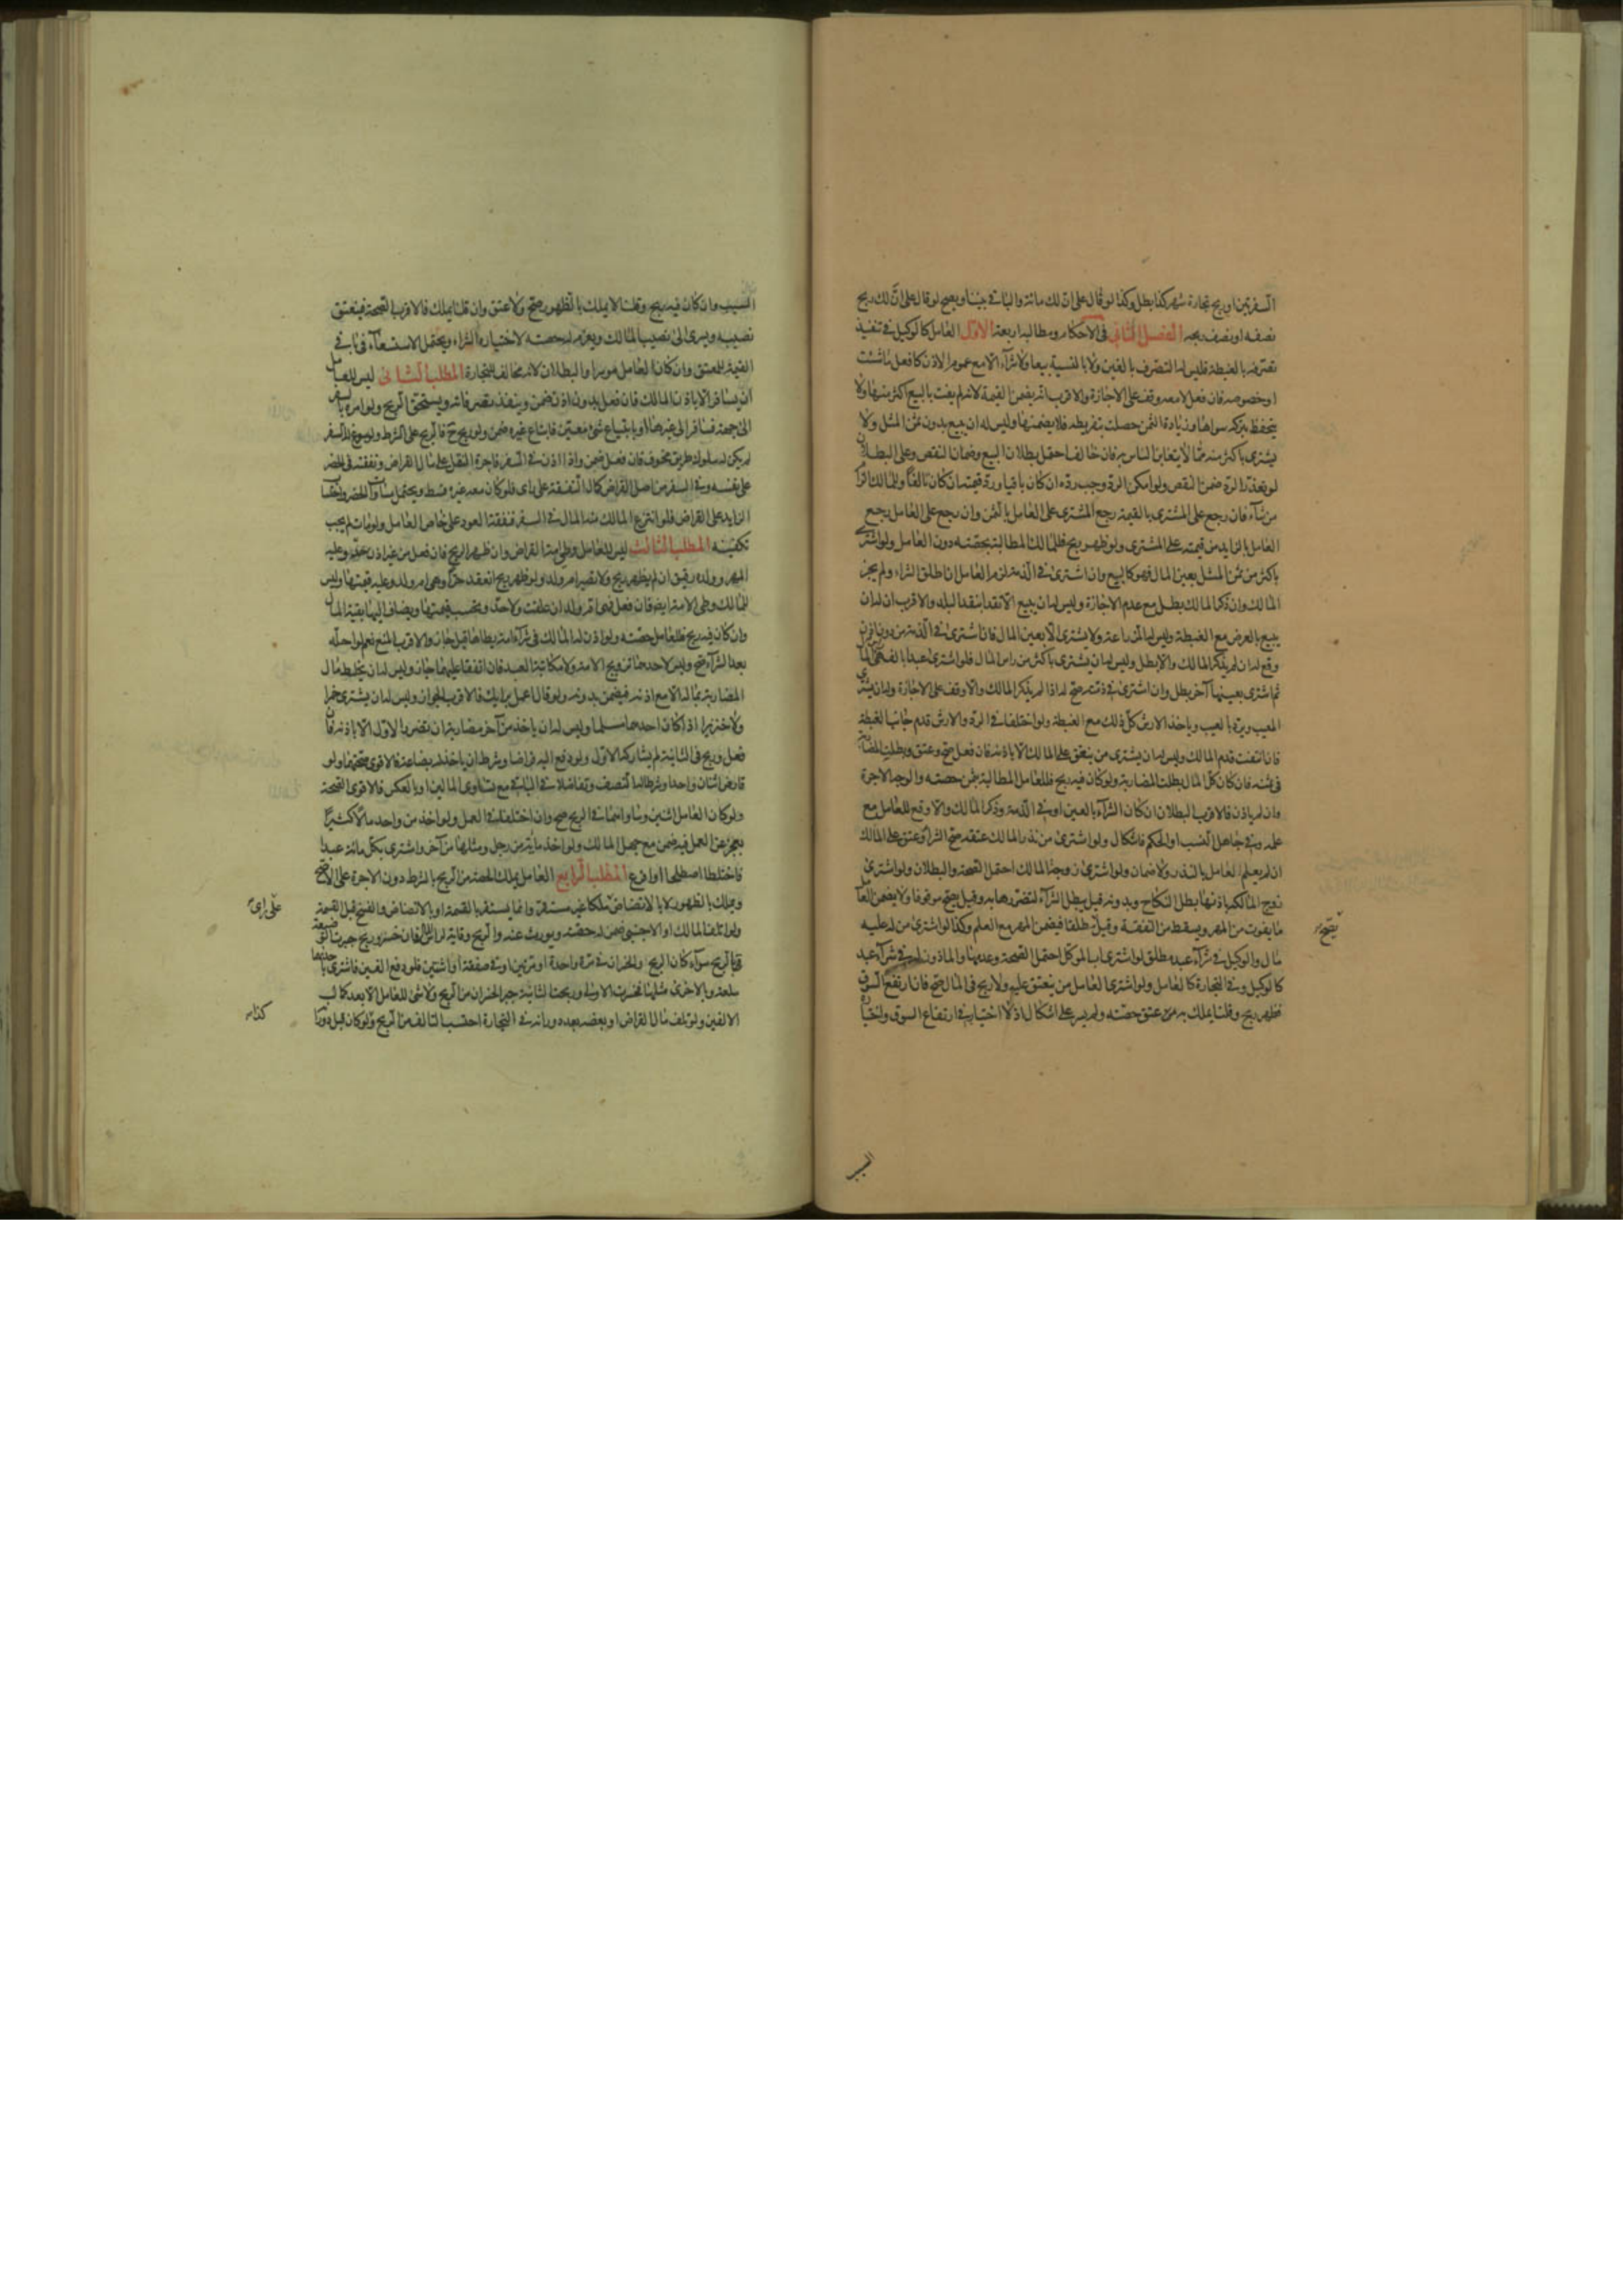 السفرتين او ربح تجارة شهر كذا بطل وكذا لو قال على ان لك مائة والباقي بيننا ويصح لو قال على ان لك ربح
نصفه او نصف ربحه الفصل الثاني في الاحكام ومطالبه اربعة الاول العامل كالوكيل في تنفيذ
تصرفه بالغبطة فليس له التصرف بالغبن ولا بالنسية بيعا ولا شراء الا مع عموم الاذن كافعل ما شئت
او خصوصه فان فعل لا معه وقف على الاجازة والاقرب انه يضمن القيمة لانه لم يفت بالبيع اكثر منها ولا
يتحفظ بتركه سواها وزيادة الثمن حصلت بتفريطه فلا يضمنها وليس له ان يبيع بدون ثمن المثل ولا
يشترى باكثر منه مما لا يتغابن الناس به فان خالف احتمل بطلان البيع وضمان النقص وعلى البطلان
لو تعذر الرد ضمن النقص ولو امكن الرد وجب رده ان كان باقيا ورد قيمته ان كان تالفا وللمالك الزام
من شاء فان رجع على المشترى بالقيمة رجع المشترى على العامل بالثمن وان رجع على العامل رجع
العامل بالزايد من قيمته على المشترى ولو ظهر ربح فللمالك المطالبة بحصته دون العامل ولو اشترى
باكثر من ثمن المثل بعين المال فهو كالبيع وان اشترى في الذمة لزم العامل ان اطلق الشراء ولم يجز
المالك وان ذكر المالك بطل مع عدم الاجازة وليس له ان يبيع الا نقدا بنقد البلد والاقرب ان له ان
يبيع بالعرض مع الغبطة وليس له المزارعة ولا يشترى الا بعين المال فان اشترى في الذمة من دون اذن
وقع له ان لم يذكر المالك والا بطل وليس له ان يشترى باكثر من راس المال فلو اشترى عبدا بالف هي المال
ثم اشترى بعينها آخر بطل وان اشترى في ذمته صح له اذا لم يذكر المالك والا وقف على الاجازة وله ان يشترى
المعيب ويرد بالعيب وياخذ الارش كل ذلك مع الغبطة ولو اختلفا في الرد والارش قدم جانب الغبطة
فان انتفت قدم المالك وليس له ان يشترى من ينعتق على المالك الا باذنه فان فعل صح وعتق وبطلت المضاربة
في ثمنه فان كان كل المال بطلت المضاربة ولو كان فيه ربح فللعامل المطالبة بثمن حصته والوجه الاجرة
وان لم ياذن فالاقرب البطلان ان كان الشراء بالعين او في الذمة وذكر المالك والا وقع للعامل مع
علمه وفي جاهل النسب او الحكم فاشكال ولو اشترى من نذر المالك عتقه صح الشراء وعتق على المالك
ان لم يعلم العامل بالنذر ولا ضمان ولو اشترى زوجة المالك احتمل الصحة والبطلان ولو اشترى
زوج المالكة باذنها بطل النكاح وبدونه قيل يبطل الشراء لتضررها به وقيل يصح موقوفا ولا يضمن العامل
ما يفوت من المهر ويسقط من النفقة وقيل مطلقا فيضمن المهر مع العلم وكذا لو اشترى من له عليه
مال والوكيل في شراء عبد مطلق لو اشترى اب الموكل احتمل الصحة وعدمها والماذون له في شراء عبد
كالوكيل وفي التجارة كالعامل ولو اشترى العامل من ينعتق عليه ولا ربح في المال صح فان ارتفع السوق
فظهر ربح وقلنا يملك به عتق حصته ولم يسر على اشكال اذ لا اختيار في ارتفاع السوق واختياره
يصح
السبب
السبب وان كان فيه ربح وقلنا لا يملك بالظهور صح ولا عتق وان قلنا يملك فالاقرب الصحة فينعتق
نصيبه ويسرى الى نصيب المالك ويغرم له حصته لاختياره الشراء ويحتمل الاستسعاء في باقي
القيمة للمعتق وان كان العامل موسرا والبطلان لانه مخالف للتجارة المطلب الثاني ليس للعامل
ان يسافر الا باذن المالك فان فعل بدون اذن ضمن وينفذ تصرفاته ويستحق الربح ولو امره بالسفر
الى جهة فسافر الى غيرها او بابتياع شئ معين فابتاع غيره ضمن ولو ربح ح فالربح على الشرط ولو سوغ له السفر
لم يكن له سلوك طريق مخوف فان فعل ضمن واذا اذن في السفر فاجرة النقل على مال القراض ونفقته في الحضر
على نفسه وفي السفر من اصل القراض كمال النفقة على راى فلو كان معه غيره قسط ويحتمل مساواة الحضر واحتساب
الزايد على القراض فلو انتزع المالك منه المال في السفر فنفقة العود على خاص العامل ولو مات لم يجب
تكفينه المطلب الثالث ليس للعامل وطي امة القراض وان ظهر الربح فان فعل من غير اذن حد وعليه
المهر وولده رقيق ان لم يظهر ربح ولا تصير ام ولد ولو ظهر ربح انعقد حرا وهي ام ولد وعليه قيمتها وليس
للمالك وطي الامة ايضا فان فعل فهي ام ولد ان علقت ولا حد ويحتسب قيمتها ويضاف اليها بقية المال
وان كان فيه ربح فللعامل حصته ولو اذن له المالك في شراء امة يطاها قيل جاز والاقرب المنع نعم لو احله
بعد الشراء صح وليس لاحدهما تزويج الامة ولا مكاتبة العبد فان اتفقا عليهما جاز وليس له ان يخلط مال
المضاربة بماله الا مع اذنه فيضمن بدونه ولو قال اعمل برايك فالاقرب الجواز وليس له ان يشترى خمرا
ولا خنزيرا اذا كان احدهما مسلما وليس له ان ياخذ من آخر مضاربة ان تضرر الاول الا باذنه فان
فعل وربح في الثانية لم يشاركه الاول ولو دفع اليه قراضا وشرط ان ياخذ له بضاعة فالاقوى صحتهما ولو
قارض اثنان واحدا وشرطا له النصف وتفاضلا في الباقي مع تساوى المالين او بالعكس فالاقوى الصحة
ولو كان العامل اثنين وساواهما في الربح صح وان اختلفا في العمل ولو اخذ من واحد مالا كثيرا
يعجز عن العمل فيه ضمن مع جهل المالك ولو اخذ مائة من رجل ومثلها من آخر واشترى بكل مائة عبدا
فاختلطا اصطلحا او اقرع المطلب الرابع العامل يملك الحصة من الربح بالشرط دون الاجرة على الاصح
ويملك بالظهور لا بالانضاض ملكا غير مستقر وانما يستقر بالقسمة او بالانضاض والفسخ قبل القسمة
على راى
ولو اتلف المالك او الاجنبي ضمن له حصته ويورث عنه والربح وقاية لراس المال فان خسر وربح جبرت الوضيعة
بالربح سواء كان الربح والخسران في مرة واحدة او مرتين او في صفقة او اثنتين فلو دفع الفين فاشترى باحدهما
سلعة وبالاخرى مثلها فخسرت الاولى وربحت الثانية جبر الخسران من الربح ولا شئ للعامل الا بعد كمال
الالفين ولو تلف مال القراض او بعضه بعد دورانه في التجارة احتسب التالف من الربح ولو كان قبل دورانه
كذا